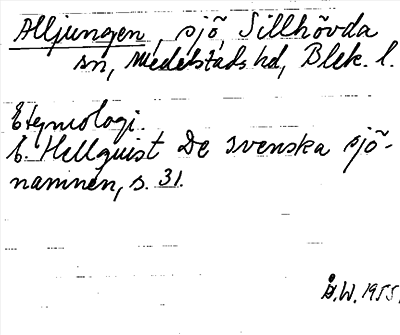 Alljungen, sjö, Sillhövda
sn, Medelstads hd, Blek. l.
Etymologi.
E. Hellquist De svenska sjö-
namnen, s. 31.
Å.W. 1955.